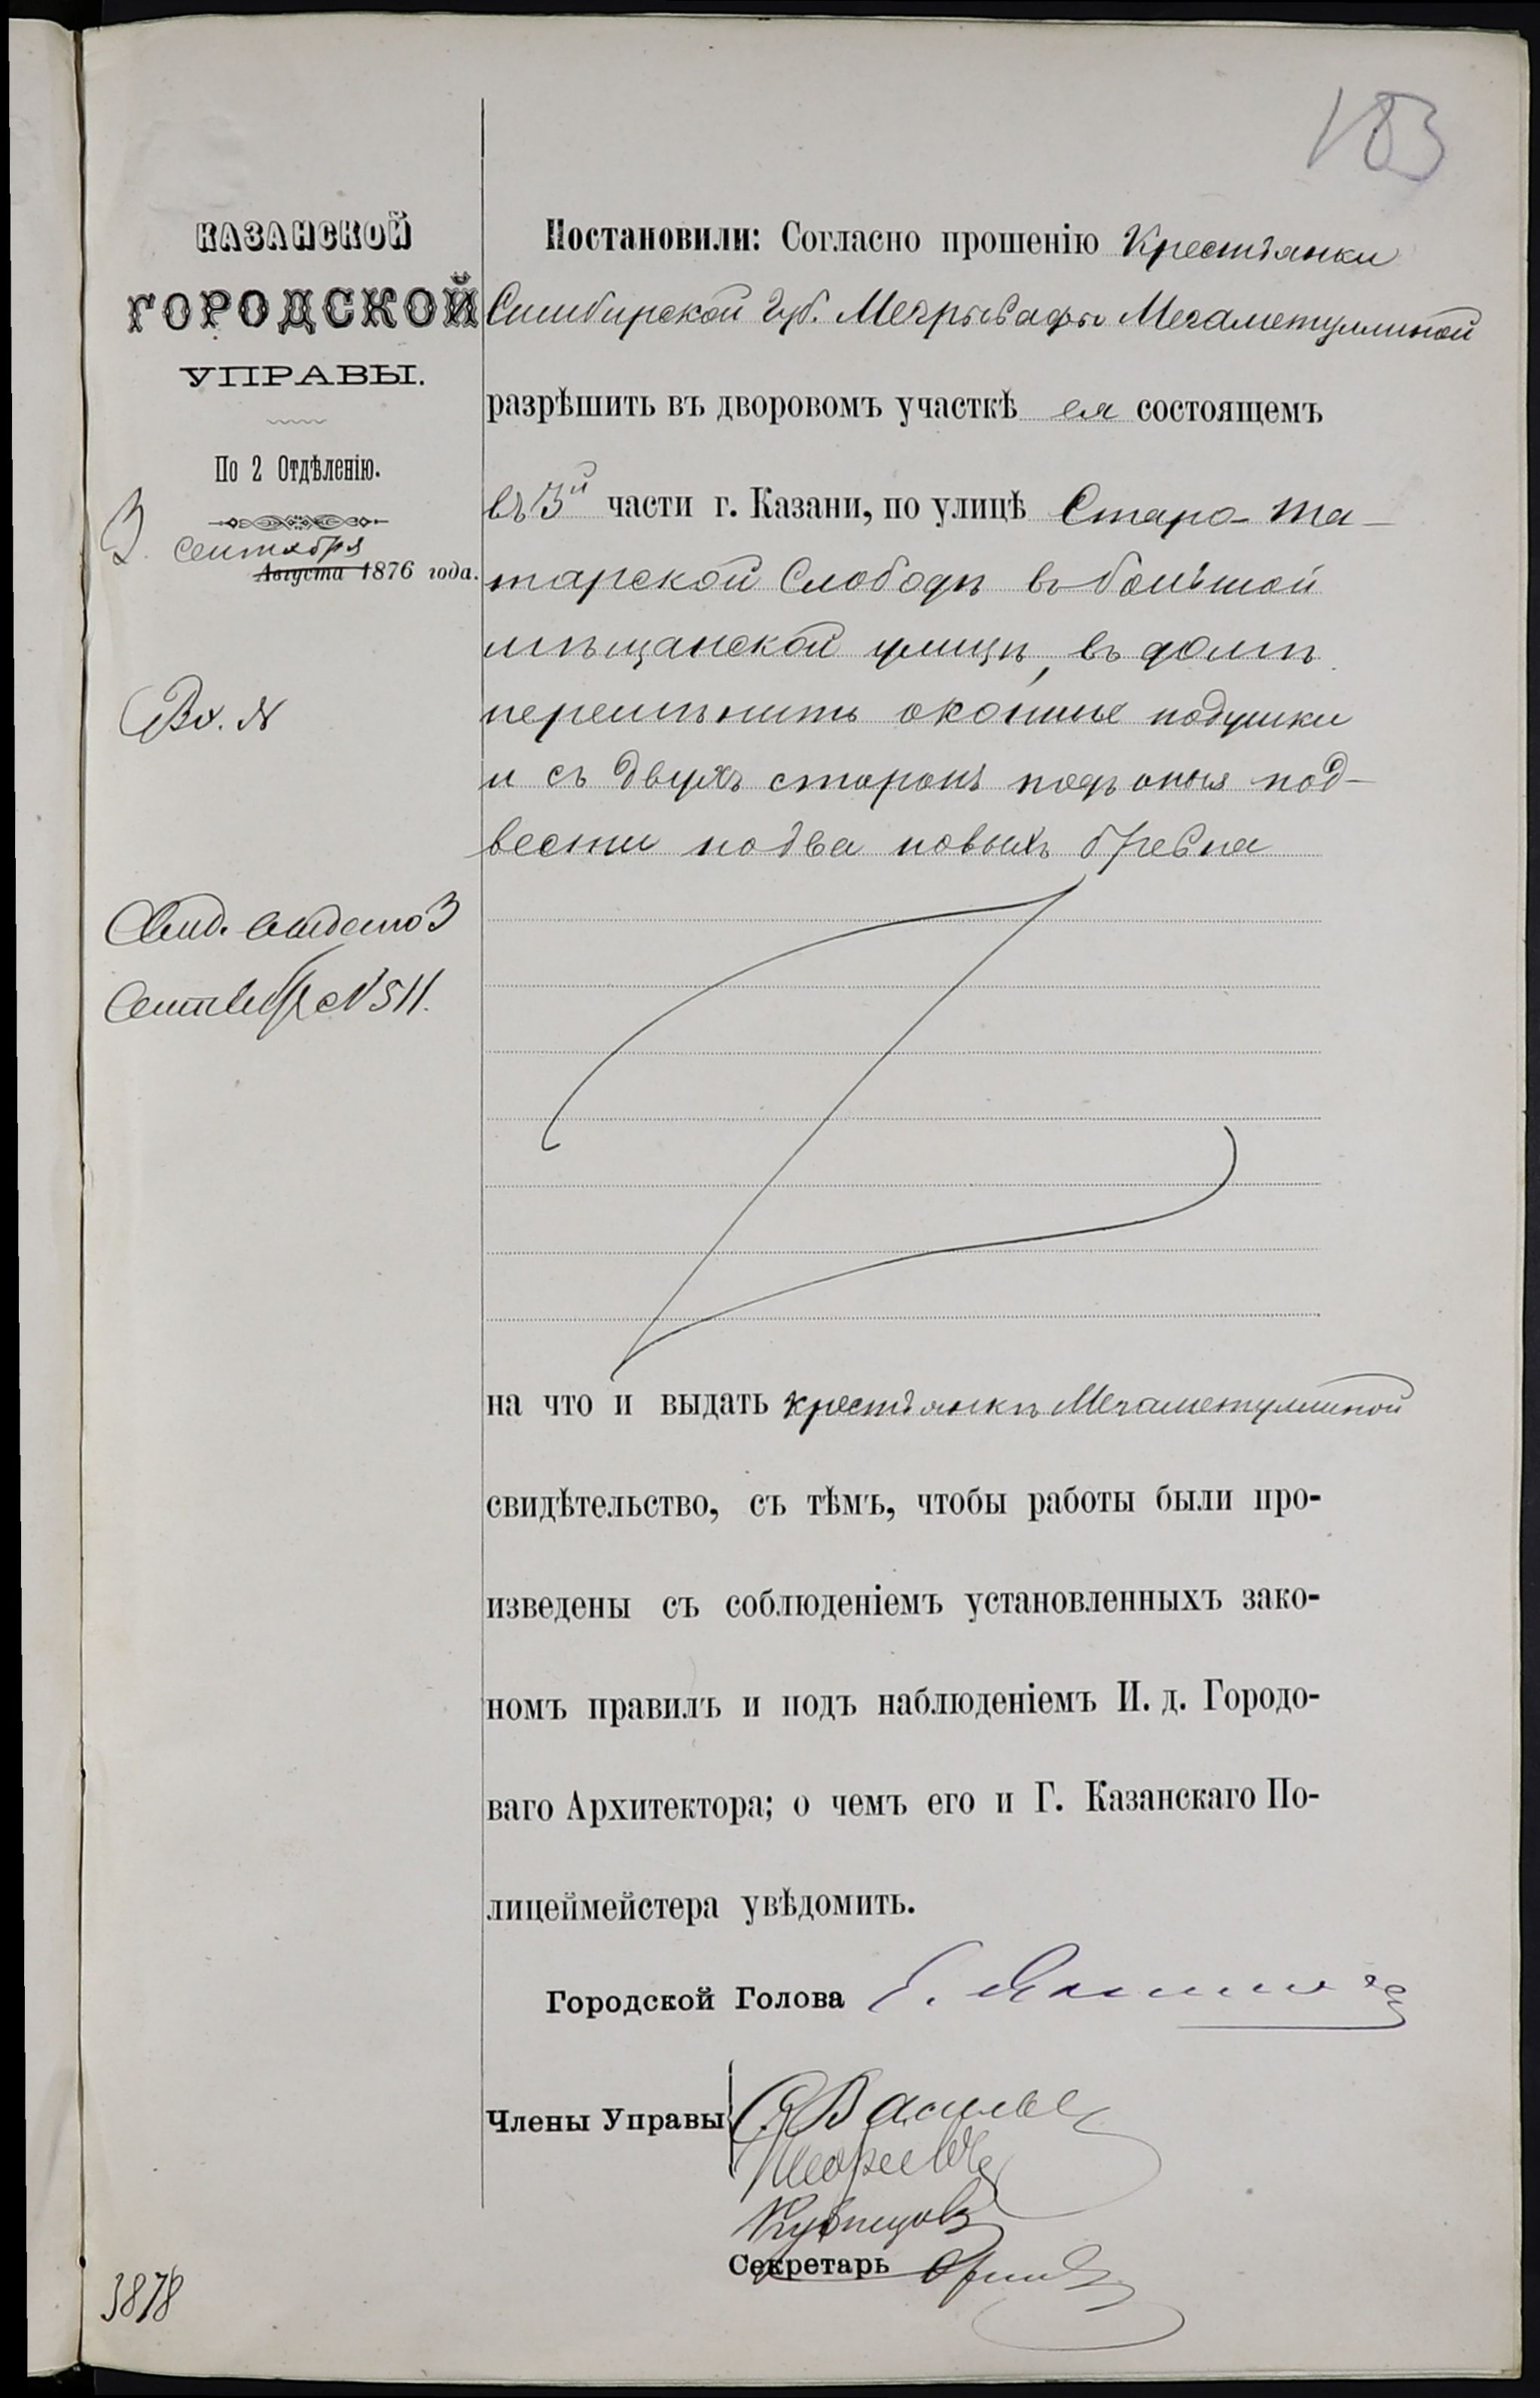 183
КАЗАНСКОЙ
ГОРОДСКОЙ
УПРАВЫ.
По 2 Отдѣленію.
3 Сентября
Августа 1876 года.
Вх. №
Свид. выдано 3
Сентября № 511.
Постановили: Согласно прошенію Крестьянки
Симбирской Губ. Мегаметуллиной
разрѣшить въ дворовомъ участкѣ ея состоящемъ
въ 3й части г. Казани, по улицѣ Старо-та-
тарской Слободѣ въ большой
мѣщанской улицѣ, въ домѣ
перемѣнить оконные подушки
и съ двухъ сторонъ подъ оныя под-
вести по два новыхъ бревна
на что и выдать крестьянкѣ Мегаметуллиной
свидѣтельство, съ тѣмъ, чтобы работы были про-
изведены съ соблюденіемъ установленныхъ зако-
номъ правилъ и подъ наблюденіемъ И. д. Городо-
ваго Архитектора; о чемъ его и Г. Казанскаго По-
лицеймейстера увѣдомить.
Городской Голова
Члены Управы
Кузнецовъ
Секретарь
3878